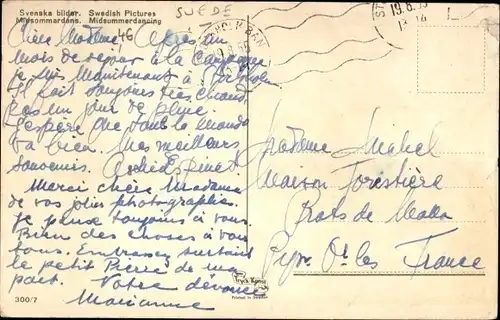 Svenska bilder. Swedish Pictures
Midsommardans. Midsummerdancing
SUEDE
46
Chère Madame, Après un
mois de séjour à la Campagne
je suis maintenant à
Il fait toujours très chaud
pas un jour de pluie.
J'espère que tout le monde
va bien. Mes meilleurs
souvenirs.
Merci chère Madame
de vos jolies photographies.
Je pense toujours à vous.
Bien des choses à vous
tous. Embrassez surtout
le petit Pierre de ma
part. Votre dévouée
Marianne
300/7
19.8.55
Madame Michel
Maison Forestière
Prats de Mollo
Pyr. Or. les France
Printed in Sweden